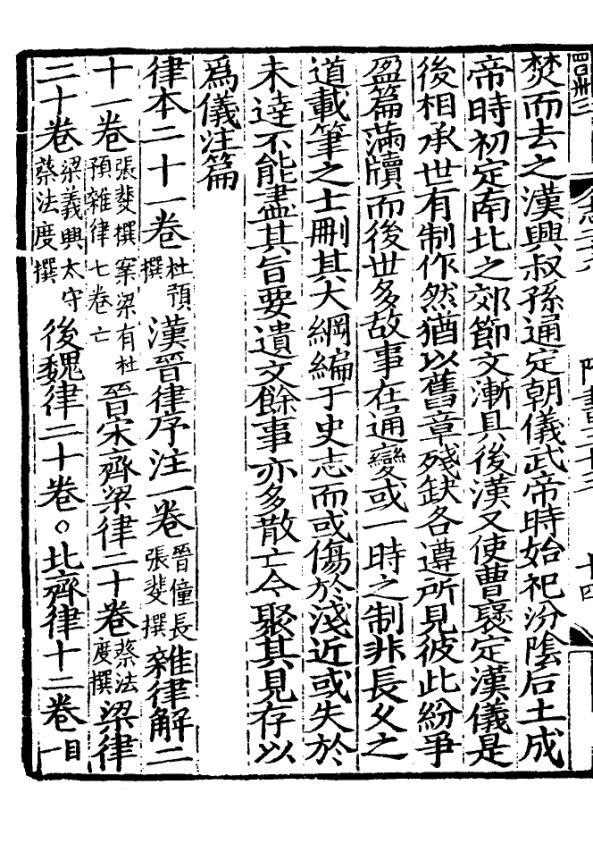 焚而去之漢興叔孫通定朝儀武帝時始祀汾陰后土成
帝時初定南北之郊節文漸具後漢又使曹襃定漢儀是
後相承世有制作然猶以舊章殘缺各遵所見彼此紛爭
盈篇滿牘而後世多故事在通變或一時之制非長久之
道載筆之士刪其大綱編于史志而或傷於淺近或失於
未達不能盡其旨要遺文餘事亦多散亡今聚其見存以
爲儀注篇
律本二十一卷杜預撰漢晉律序注一卷晉僮長張斐撰雜律解二
十一卷張斐撰案梁有杜預雜律七卷亡晉宋齊梁律二十卷蔡法度撰梁律
二十卷梁義興太守蔡法度撰後魏律二十卷○北齊律十二卷目一